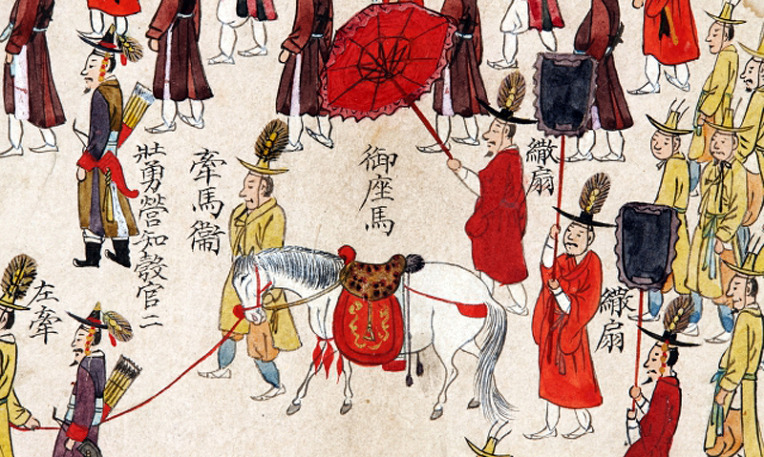 繖扇
繖扇
御座馬
牽馬
壯勇營知彀官二
左牽